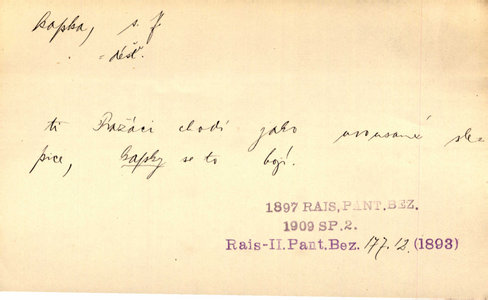 kapka, s. f.
. = déšť.
ti Pražáci chodí jako urousané sle-
pice, kapky se to bojí.
1897 RAIS, PANT. BEZ.
1909 SP. 2.
Rais-II. Pant. Bez. 177.12 (1893)